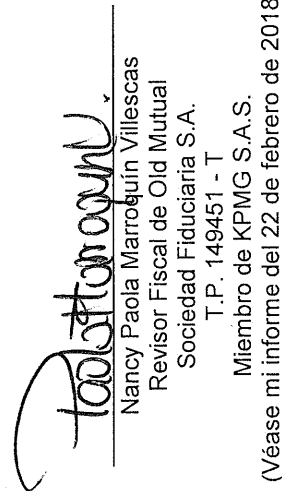 Paola Marroquín V.
Nancy Paola Marroquín Villescas
Revisor Fiscal de Old Mutual
Sociedad Fiduciaria S.A.
T.P. 149451 - T
Miembro de KPMG S.A.S.
(Véase mi informe del 22 de febrero de 2018